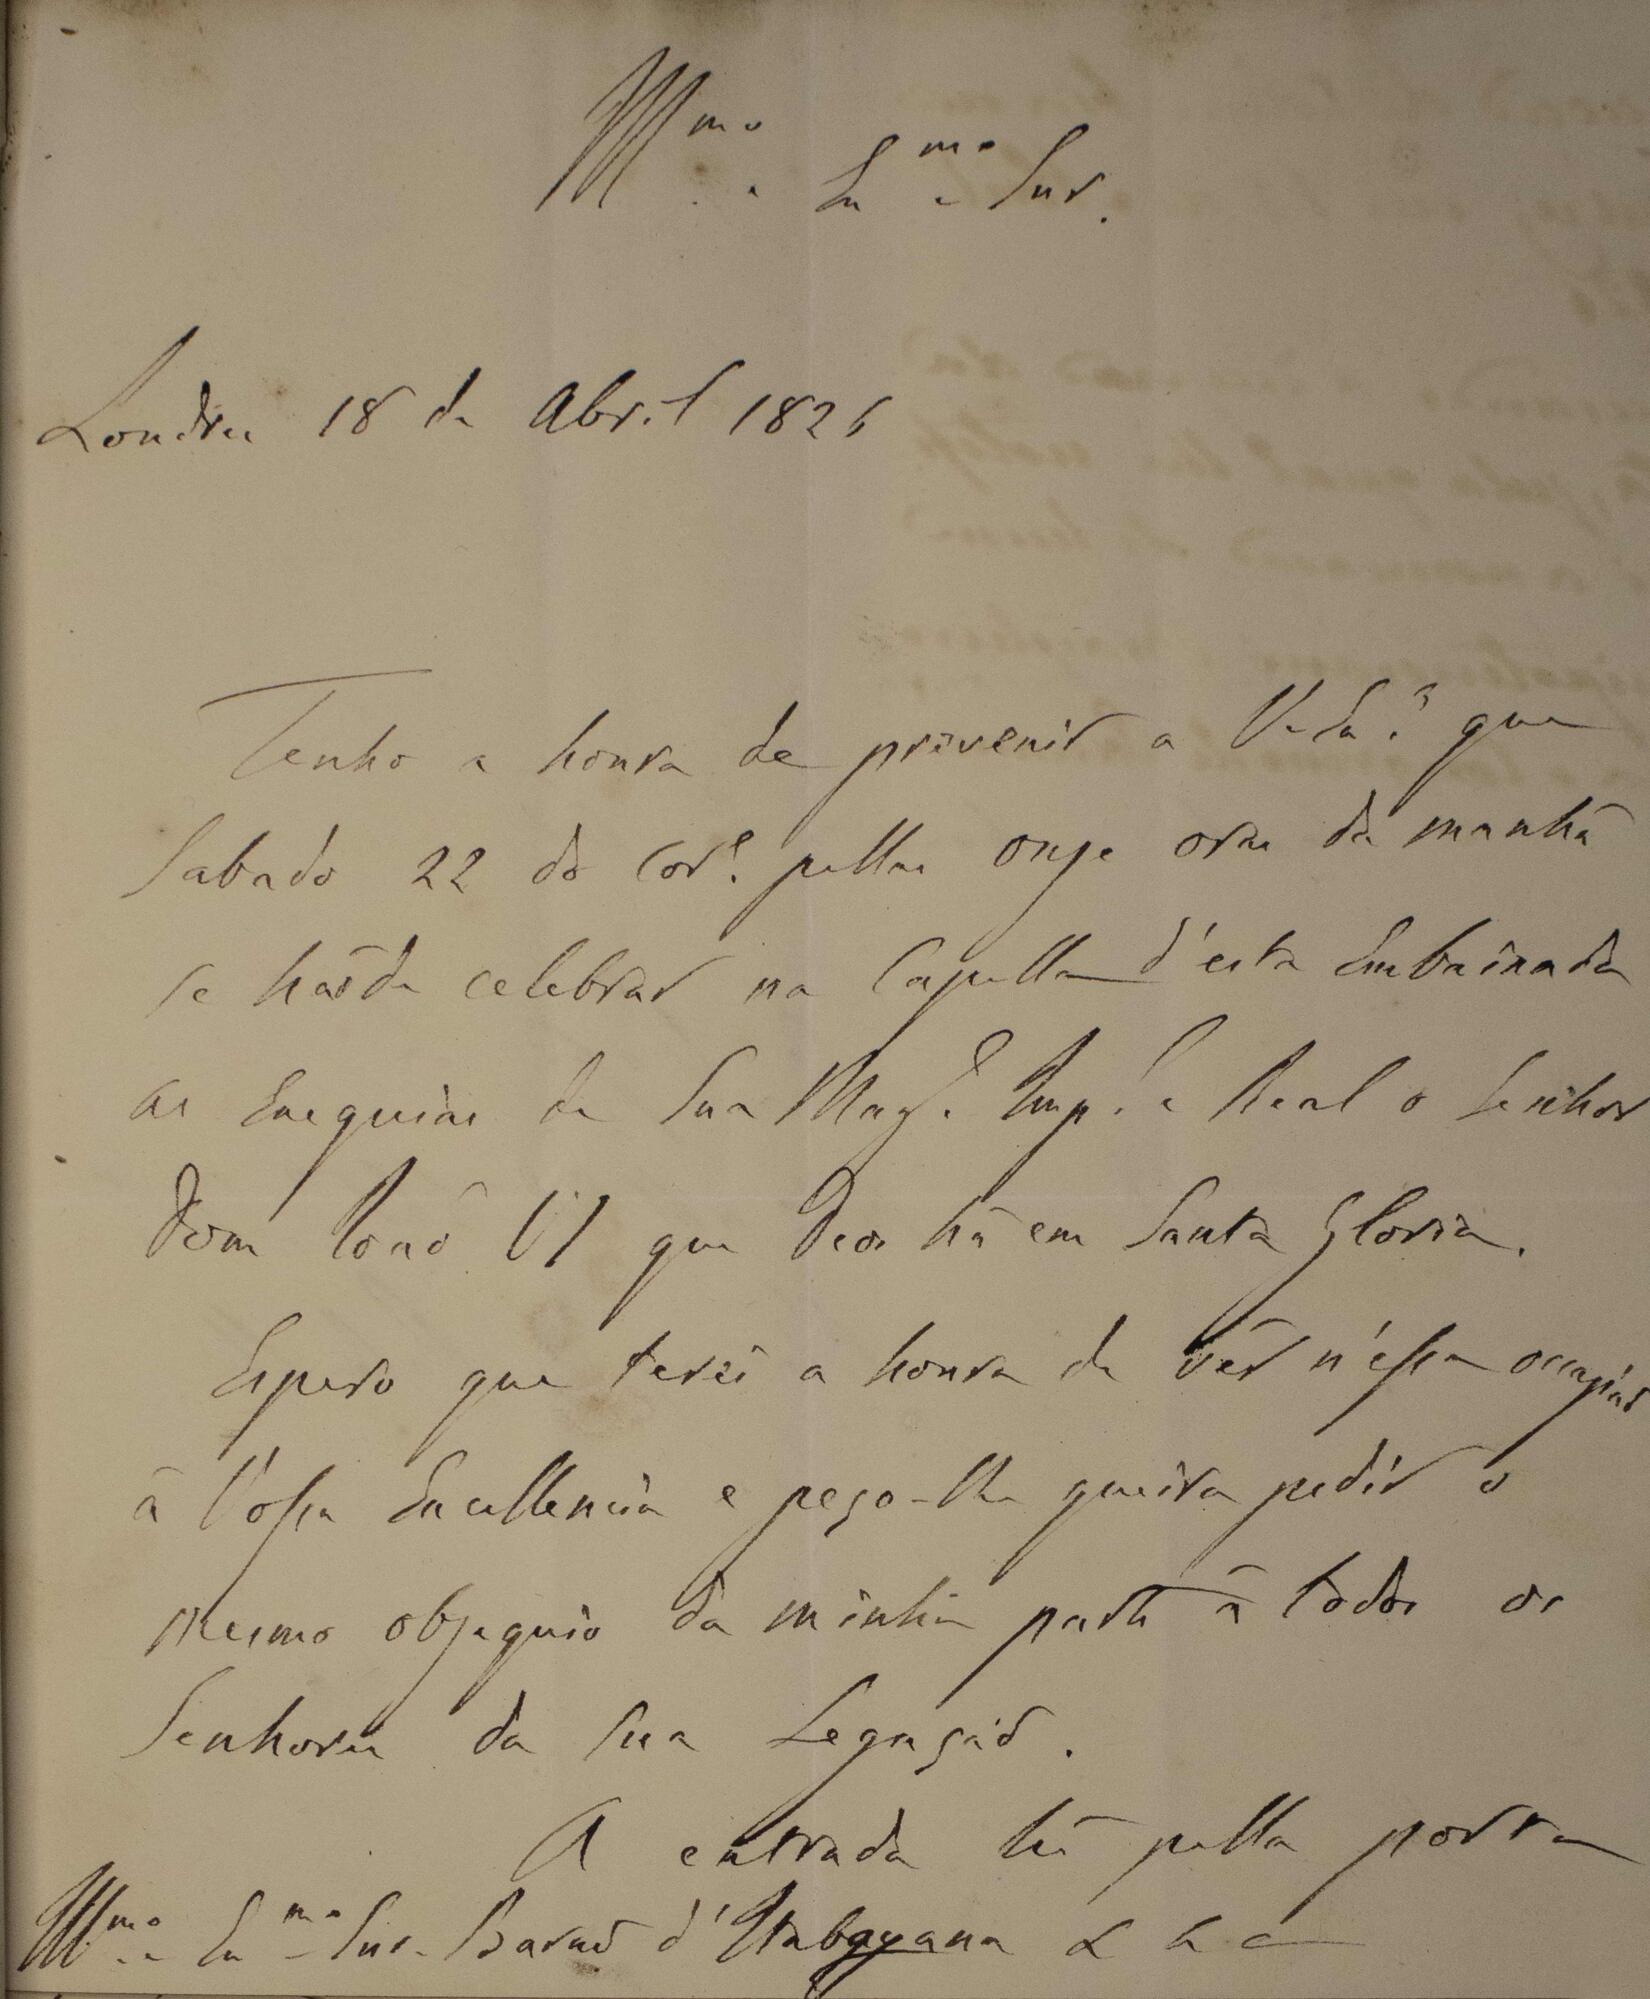 Illmo. e Exmo. Snr.
Londres 18 de Abril 1826
Tenho a honra de prevenir a V. Exª. que
Sabado 22 do Corᵉ. pellas onze oras da manhã
se haõde celebrar na Capella d'esta Embaixada
as Exequias de Sua Magᵉ. Impˡ. e Real o Senhor
Dom Joaõ VI que Deos há em Santa Gloria.
Espero que terei a honra de vêr n'essa occasiaõ
à Vossa Excellencia e peço-lhe queira pedir o
mesmo obsequio da minha parte à todos os
Senhores da sua Legaçaõ.
A entrada hé pella porta
Illmo. e Exmo. Snr. Baraõ d'Itabayana &c &c